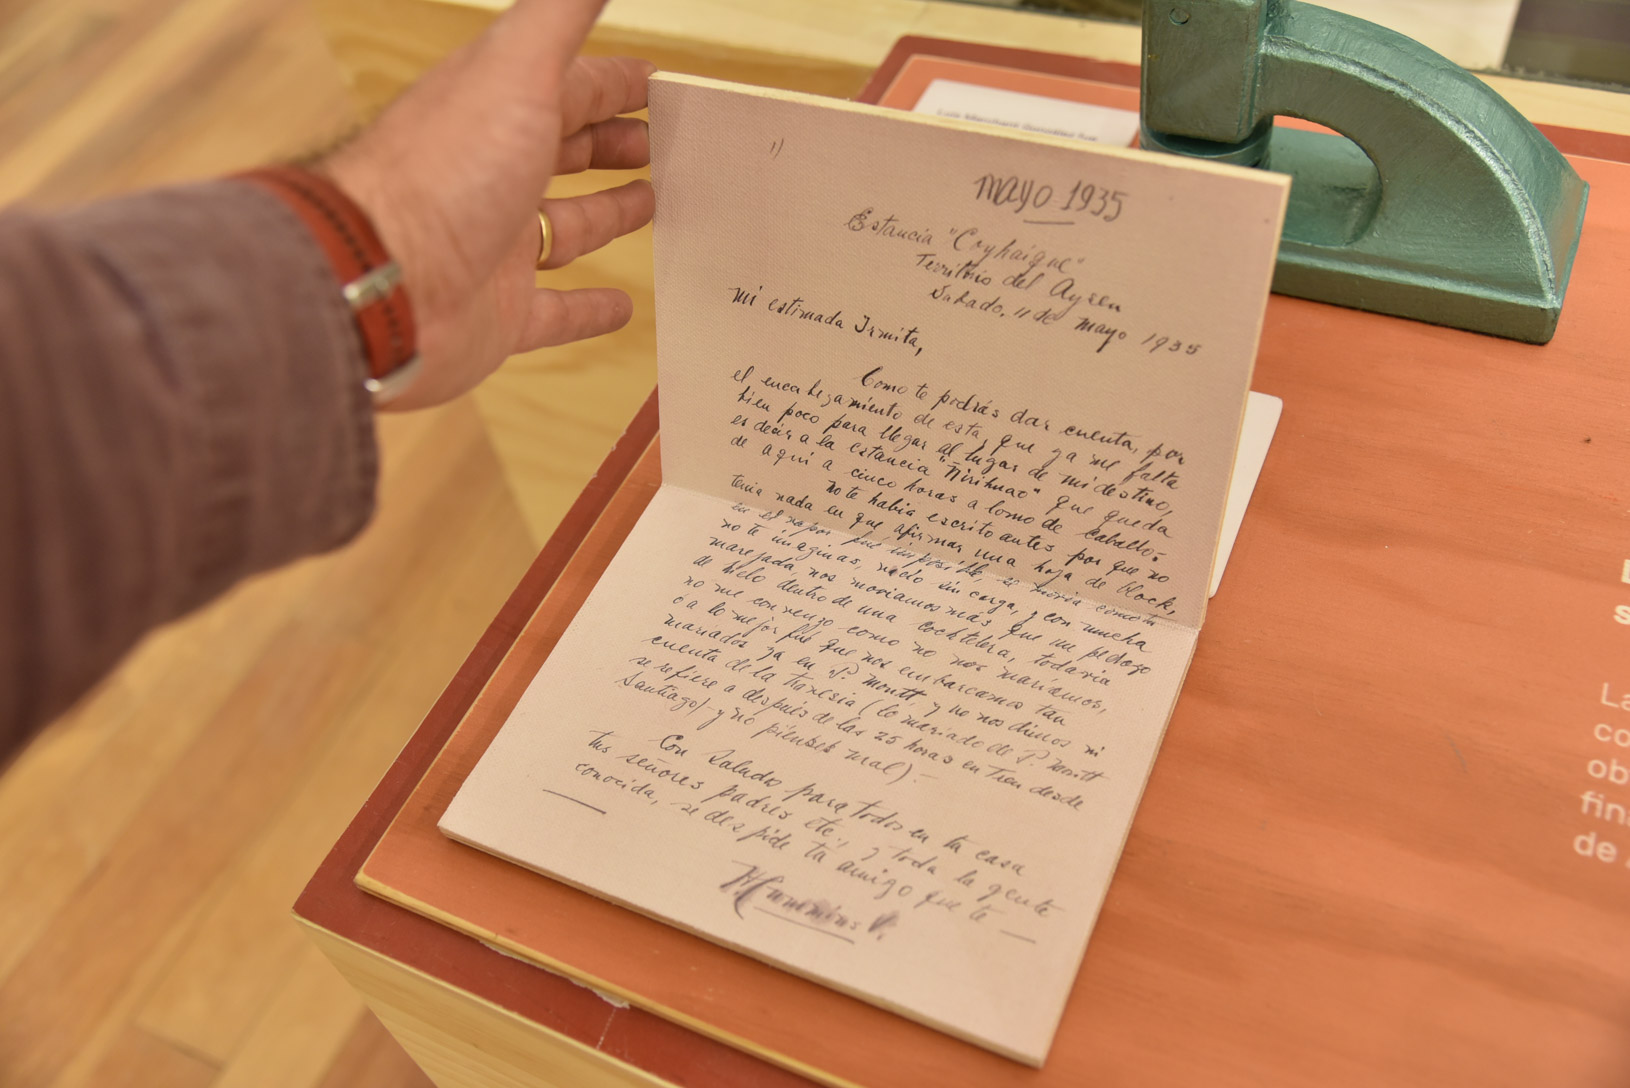 Luis Marchant González fue
1)
mayo 1935
Estancia "Coyhaique"
Territorio del Aysen
Sabado, 11 de mayo 1935
Mi estimada Irmita,
Como te podrás dar cuenta, por
el encabezamiento de esta, que ya me falta
bien poco para llegar al lugar de mi destino,
es decir a la estancia "Ñirihuao" que queda
de aquí a cinco horas a lomo de caballo.-
No te habia escrito antes por que no
tenia nada en que afirmar una hoja de block,
en el vapor fué imposible, se movia como tu
no te imaginas, vacio sin carga, y con mucha
marejada nos moviamos más que un pedazo
de hielo dentro de una cocktelera, todavia
no me convenzo como no nos mariamos,
ó a lo mejor fué que nos embarcamos tan
mariados ya en P. Montt y no nos dimos ni
cuenta de la travesia (lo mariado de P. Montt
se refiere a después de las 25 horas en Tren desde
Santiago) y no pienses mal).-
Con saludos para todos en tu casa
tus señores padres etc. y toda la gente
conocida, se despide tu amigo que te —
Cummins V.
La
co
ob
fin
de